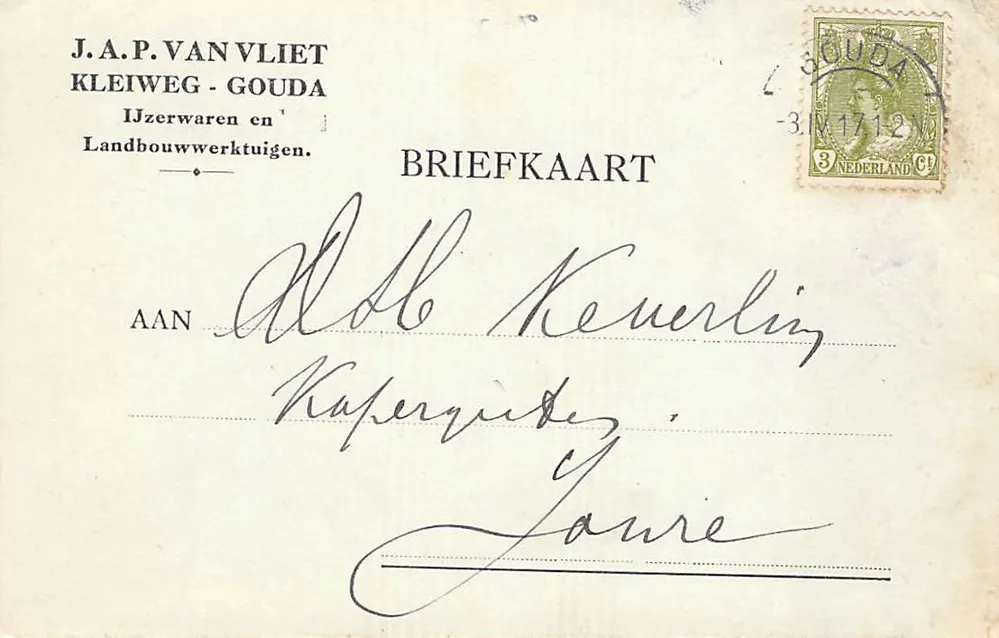 J. A. P. VAN VLIET
KLEIWEG - GOUDA
IJzerwaren en
Landbouwwerktuigen.
GOUDA
-3.IV.17.1-2.N
3 NEDERLAND Ct
BRIEFKAART
AAN Keverling
Kopergieter
Joure